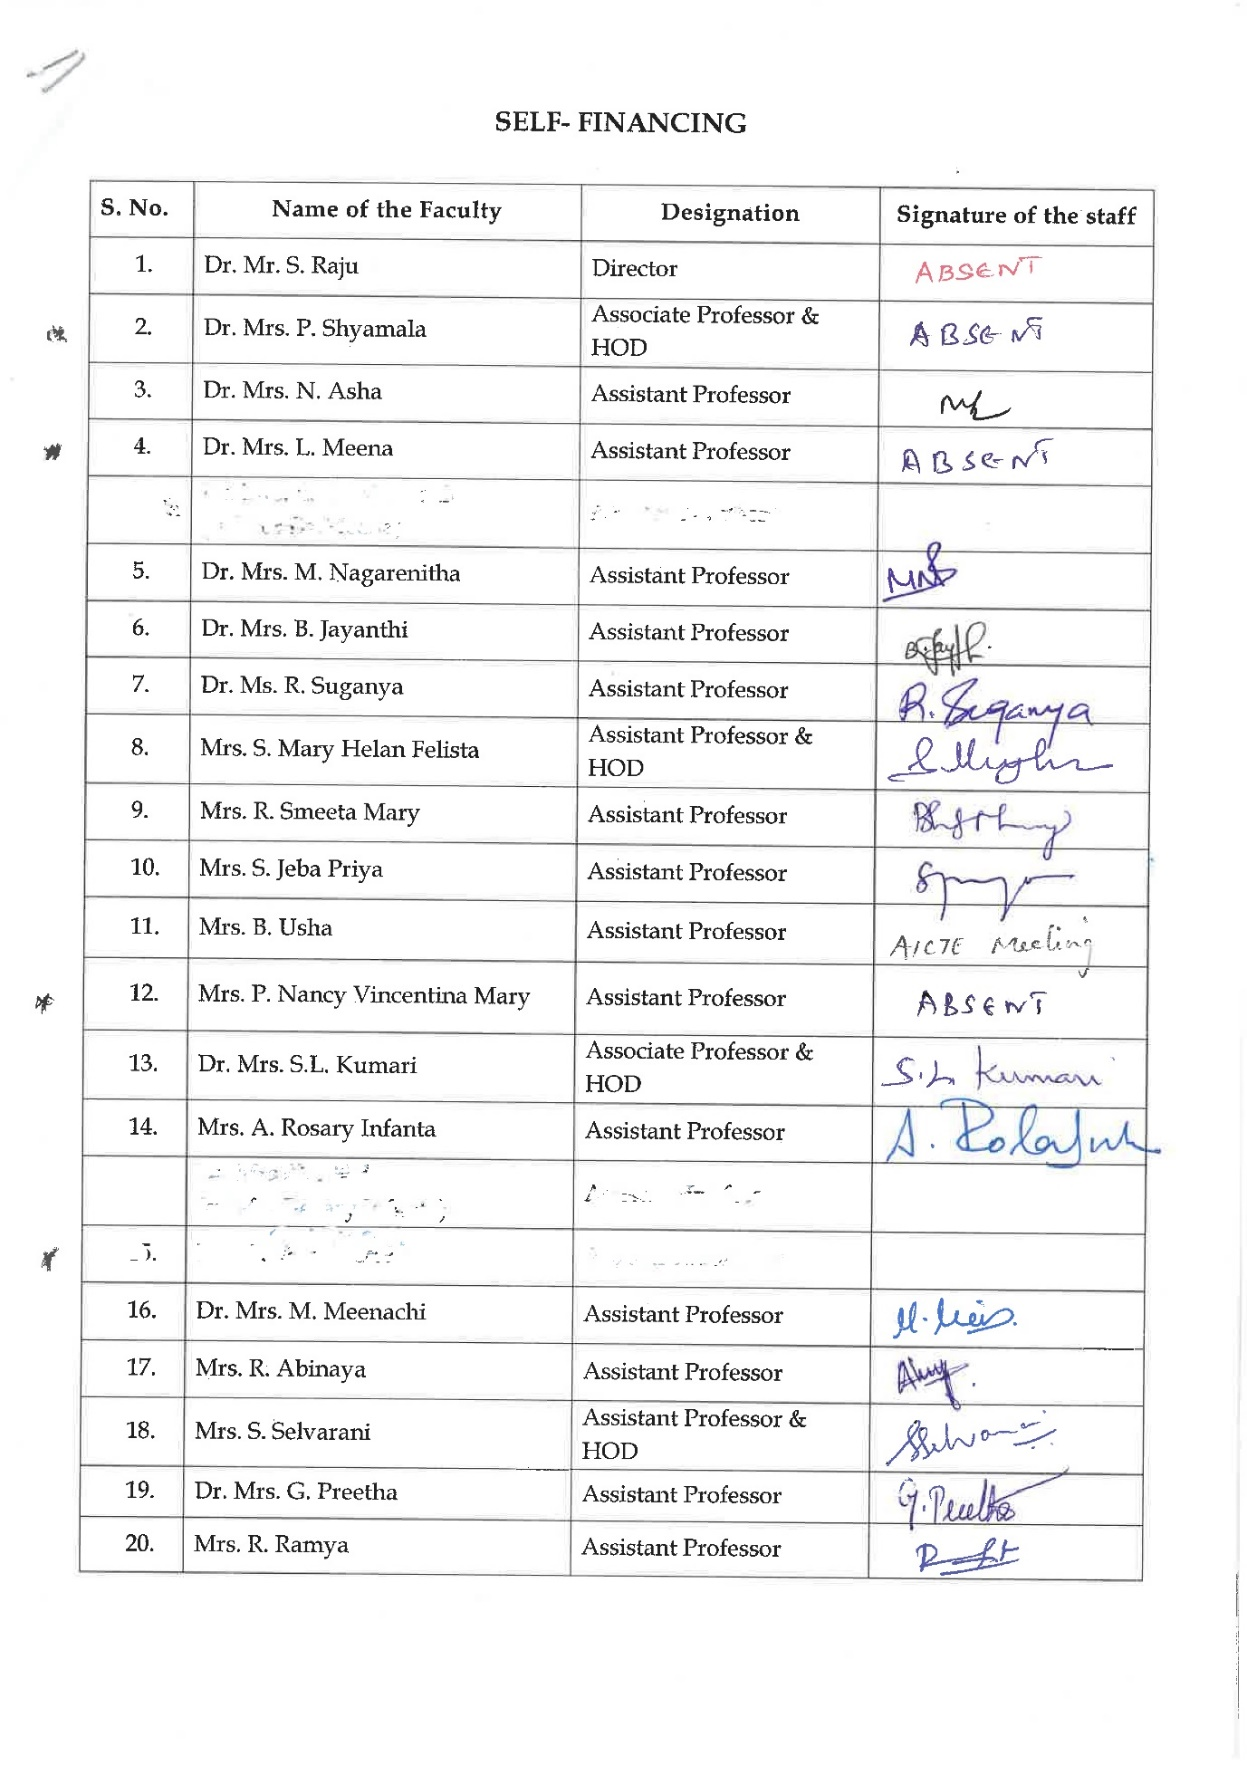 SELF- FINANCING
S. No. Name of the Faculty Designation Signature of the staff
1. Dr. Mr. S. Raju Director ABSENT
2. Dr. Mrs. P. Shyamala Associate Professor &
HOD ABSENT
3. Dr. Mrs. N. Asha Assistant Professor
4. Dr. Mrs. L. Meena Assistant Professor ABSENT
5. Dr. Mrs. M. Nagarenitha Assistant Professor
6. Dr. Mrs. B. Jayanthi Assistant Professor
7. Dr. Ms. R. Suganya Assistant Professor R. Suganya
8. Mrs. S. Mary Helan Felista Assistant Professor &
HOD
9. Mrs. R. Smeeta Mary Assistant Professor
10. Mrs. S. Jeba Priya Assistant Professor
11. Mrs. B. Usha Assistant Professor AICTE Meeting
12. Mrs. P. Nancy Vincentina Mary Assistant Professor ABSENT
13. Dr. Mrs. S.L. Kumari Associate Professor &
HOD S.L Kumari
14. Mrs. A. Rosary Infanta Assistant Professor
16. Dr. Mrs. M. Meenachi Assistant Professor
17. Mrs. R. Abinaya Assistant Professor
18. Mrs. S. Selvarani Assistant Professor &
HOD
19. Dr. Mrs. G. Preetha Assistant Professor G. Preetha
20. Mrs. R. Ramya Assistant Professor